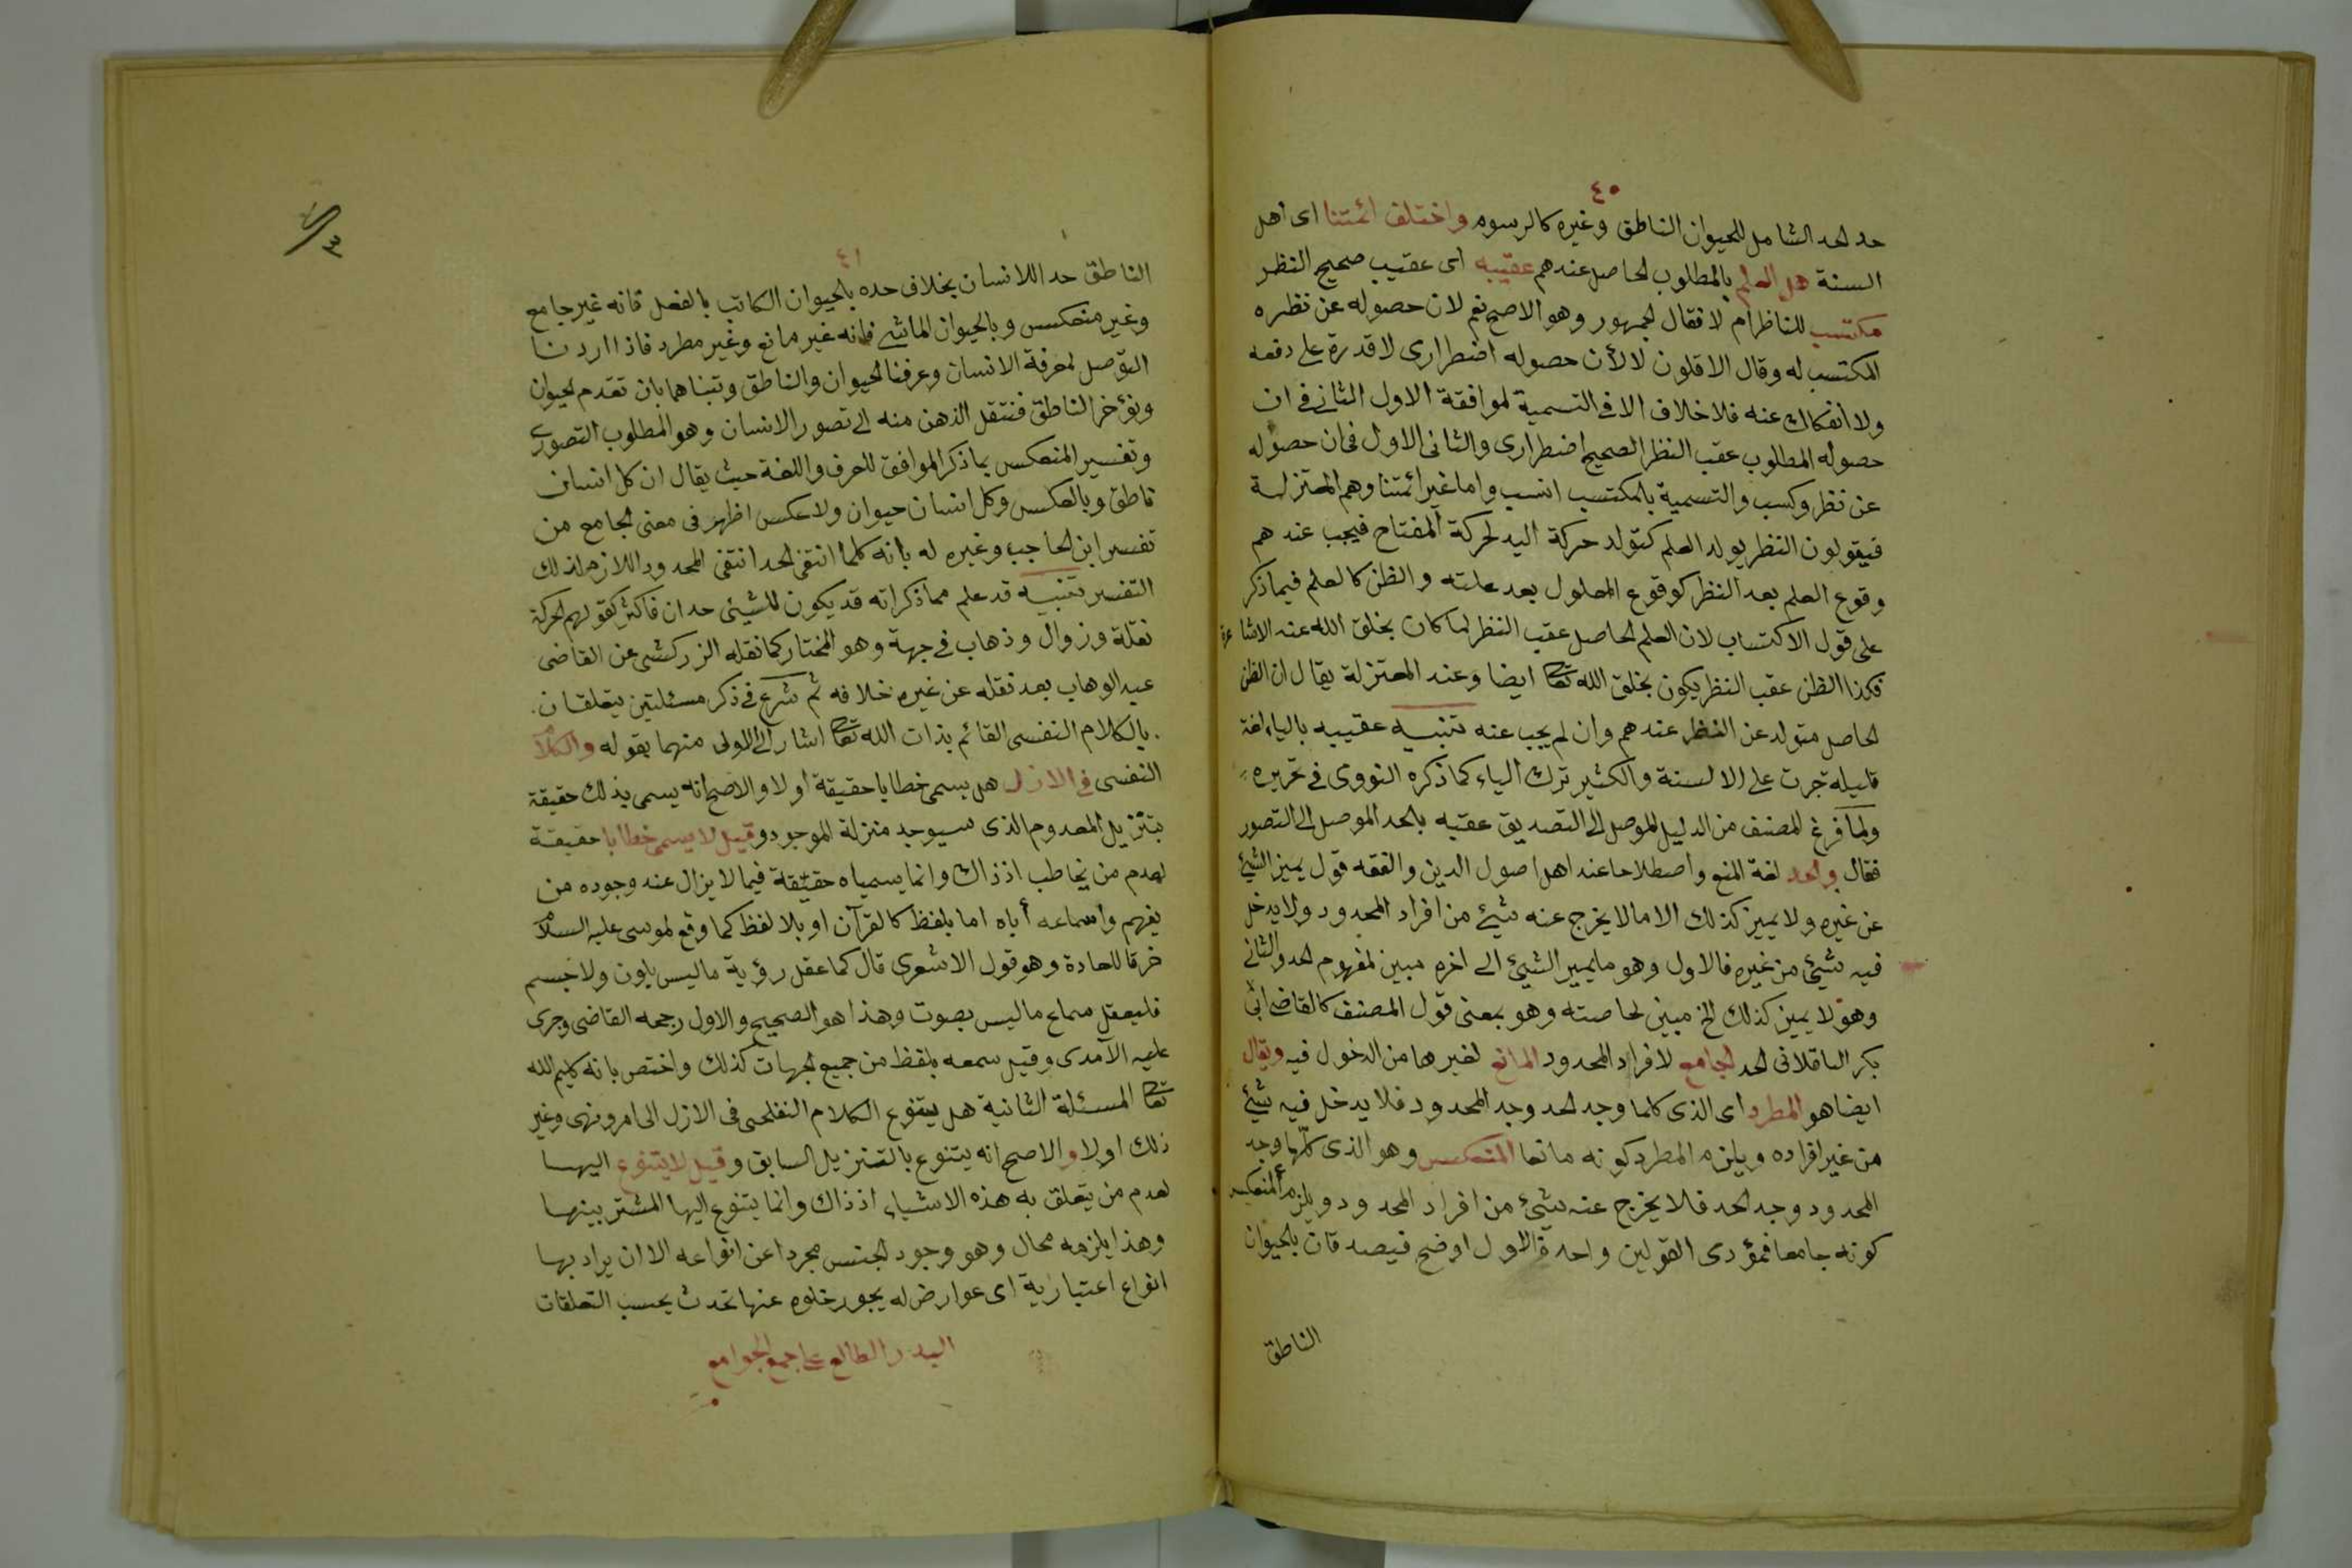 ٤٠
حد الحد الشامل للحيوان الناطق وغيره كالرسوم واختلف ائمتنا اى اهل
السنة هل العلم بالمطلوب الحاصل عندهم عقيبه اى عقيب صحيح النظر
مكتسب للناظر ام لا فقال الجمهور وهو الاصح نعم لان حصوله عن نظره
المكتسب له وقال الاقلون لا لأن حصوله اضطرارى لا قدرة على دفعه
ولا انفكاك عنه فلا خلاف الا فى التسمية لموافقة الاول الثانى فى ان
حصوله المطلوب عقب النظر الصحيح اضطرارى والثانى الاول فى ان حصوله
عن نظر وكسب والتسمية بالمكتسب انسب واما غير ائمتنا وهم المعتزلة
فيقولون النظر يولد العلم كتولد حركة اليد لحركة المفتاح فيجب عندهم
وقوع العلم بعد النظر كوقوع المعلول بعد علته والظن كالعلم فيما ذكر
على قول الاكتساب لان العلم الحاصل عقب النظر لما كان بخلق الله عند الاشاعرة
فكذا الظن عقب النظر يكون بخلق الله تعا ايضا وعند المعتزلة يقال ان الظن
الحاصل متولد عن النظر عندهم وان لم يجب عنه تنبيه عقيبه بالياء لغة
قليلة جرت على الالسنة والكثير ترك الياء كما ذكره النووى فى تحريره
ولما فرغ المصنف من الدليل الموصل الى التصديق عقبه بالحد الموصل الى التصور
فقال والحد لغة المنع واصطلاحا عند اهل اصول الدين والفقه قول يميز الشئ
عن غيره ولا يميز كذلك الا ما لا يخرج عنه شئ من افراد المحدود ولا يدخل
فيه شئ من غيره فالاول وهو ما يميز الشئ الى اخره مبين لمفهوم الحد والثانى
وهو لا يميز كذلك الخ مبين لخاصته وهو بمعنى قول المصنف كالقاضى ابى
بكر الباقلانى الحد الجامع لافراد المحدود المانع لغيرها من الدخول فيه ويقال
ايضا هو المطرد اى الذى كلما وجد الحد وجد المحدود فلا يدخل فيه شئ
من غير افراده ويلزم المطرد كونه مانعا المنعكس وهو الذى كلما وجد
المحدود وجد الحد فلا يخرج عنه شئ من افراد المحدود ويلزم المنعكس
كونه جامعا فمؤدى القولين واحد والاول اوضح فيصدقان بالحيوان
الناطق
٤١
الناطق حد اللانسان بخلاف حده بالحيوان الكاتب بالفعل فانه غير جامع
وغير منعكس وبالحيوان الماشى فانه غير مانع وغير مطرد فاذا اردنا
التوصل لمعرفة الانسان وعرفنا الحيوان والناطق وتبناهما بان تقدم الحيوان
ونؤخر الناطق فنتقل الذهن منه الى تصور الانسان وهو المطلوب التصورى
وتفسير المنعكس بما ذكر الموافق للعرف واللغة حيث يقال ان كل انسان
ناطق وبالعكس وكل انسان حيوان ولا عكس اظهر فى معنى الجامع من
تفسير ابن الحاجب وغيره له بانه كلما انتفى الحد انتفى المحدود اللازم لذلك
التفسير تنبيه قد علم مما ذكر انه قد يكون للشيئ حدان فاكثر كقولهم الحركة
نقلة وزوال وذهاب فى جهة وهو المختار كما نقله الزركشى عن القاضى
عبد الوهاب بعد نقله عن غيره خلافه ثم شرع فى ذكر مسئلتين يتعلقان
بالكلام النفسى القائم بذات الله تعا اشار الى الاولى منهما بقوله والكلام
النفسى فى الازل هل يسمى خطابا حقيقة أو لا والاصح انه يسمى بذلك حقيقة
بتنزيل المعدوم الذى سيوجد منزلة الموجود وقيل لا يسمى خطابا حقيقة
لعدم من يخاطب اذ ذاك وانما يسمياه حقيقة فيما لا يزال عند وجوده من
يفهم واسماعه أياه اما بلفظ كالقرآن او بلا لفظ كما وقع لموسى عليه السلام
خرقا للعادة وهو قول الاشعرى قال كما عقل رؤية ما ليس بلون ولا جسم
فليعقل سماع ما ليس بصوت وهذا هو الصحيح والاول رجحه القاضى وجرى
عليه الآمدى وقيل سمعه بلفظ من جميع الجهات كذلك واختص بانه كليم الله
تعا المسئلة الثانية هل يتنوع الكلام النفسى فى الازل الى امر ونهى وغير
ذلك او لا والاصح انه يتنوع بالتنزيل السابق وقيل لا يتنوع اليها
لعدم من يتعلق به هذه الاشياء اذ ذاك وانما يتنوع اليها المشتر بينها
وهذا يلزمه محال وهو وجود الجنس مجردا عن انواعه الا ان يراد بها
انواع اعتبارية اى عوارض له يجوز خلوه عنها تحدث بحسب التعلقات
البدر الطالع على جمع الجوامع